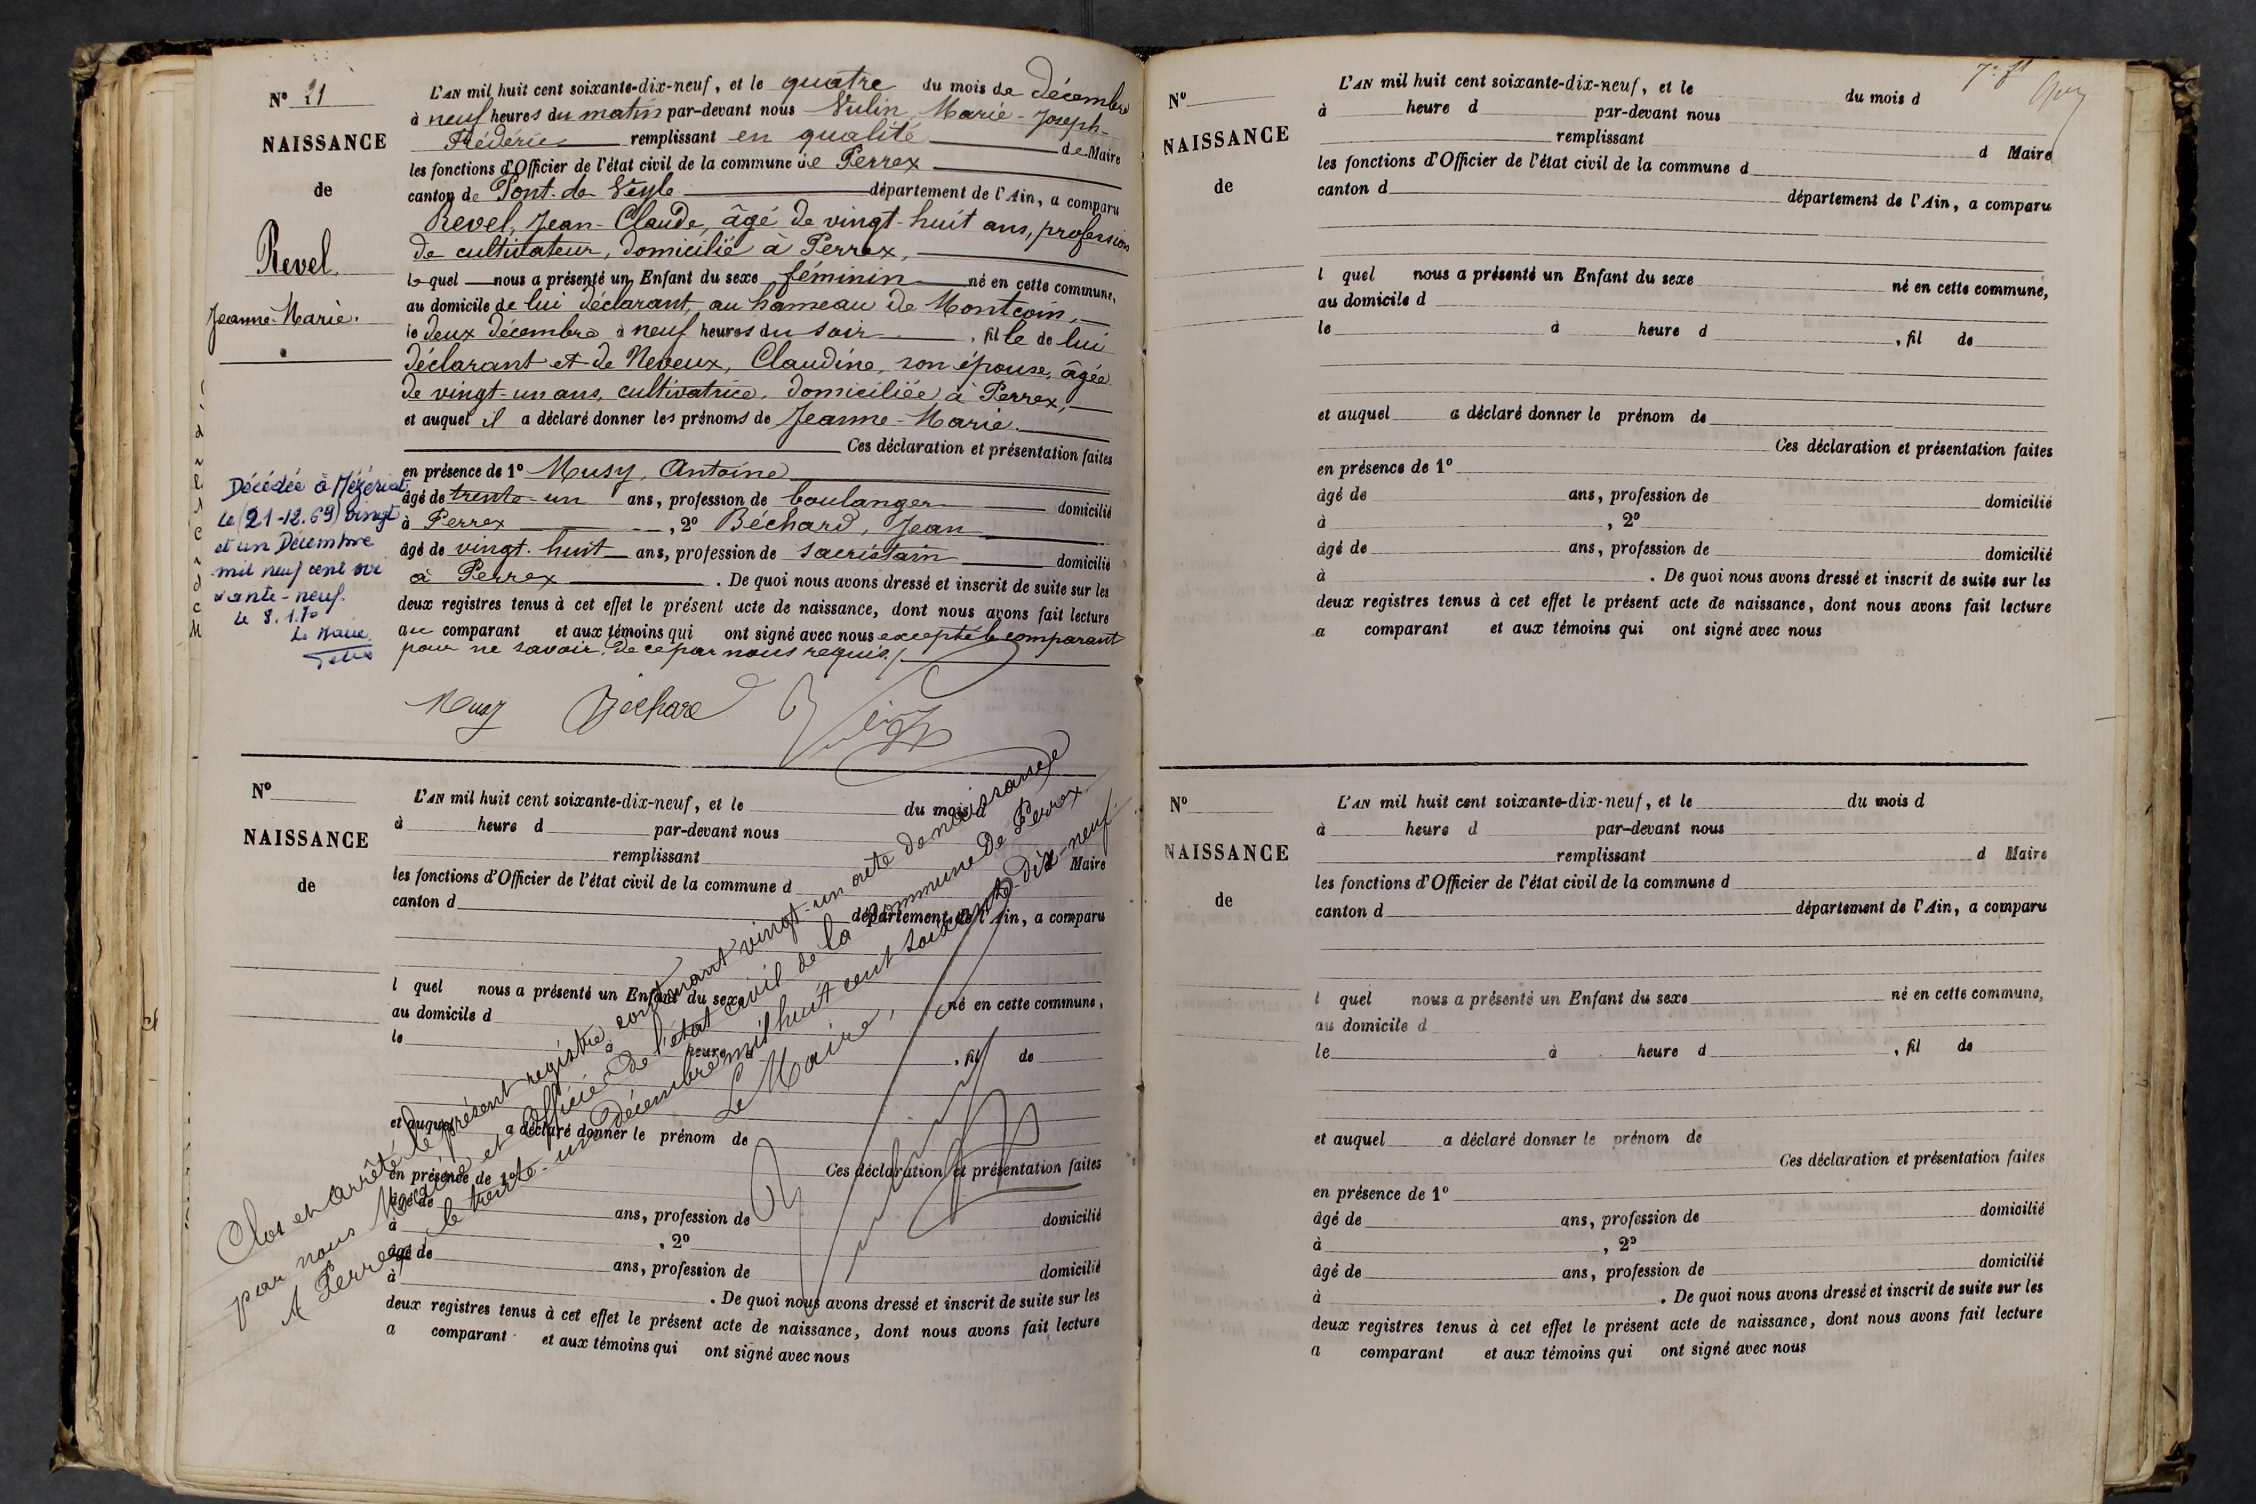 N° 21
NAISSANCE
de
Revel
Jeanne-Marie.
L'AN mil huit cent soixante-dix-neuf, et le quatre du mois de décembre
à neuf heures du matin par-devant nous Vulin, Marie-Joseph-
Frédéric remplissant en qualité de Maire
les fonctions d'Officier de l'état civil de la commune de Perrex
canton de Pont-de-Veyle département de l'Ain, a comparu
Revel, Jean-Claude, âgé de vingt-huit ans, profession
de cultivateur, domicilié à Perrex,
lequel nous a présenté un Enfant du sexe féminin né en cette commune,
au domicile de lui déclarant, au hameau de Montcoin,
le deux décembre à neuf heures du soir, fille de lui
déclarant et de Neveux, Claudine, son épouse, âgée
de vingt-un ans, cultivatrice, domiciliée à Perrex,
et auquel il a déclaré donner les prénoms de Jeanne-Marie.
Ces déclaration et présentation faites
en présence de 1° Musy, Antoine
âgé de trente-un ans, profession de boulanger domicilié
à Perrex, 2° Béchard, Jean
âgé de vingt-huit ans, profession de sacristain domicilié
à Perrex. De quoi nous avons dressé et inscrit de suite sur les
deux registres tenus à cet effet le présent acte de naissance, dont nous avons fait lecture
au comparant et aux témoins qui ont signé avec nous excepté le comparant
pour ne savoir, de ce par nous requis./
Musy Béchard Vulin
Décédée à Mézériat
le (21-12.69) vingt
et un Décembre
mil neuf cent soi
xante-neuf.
Le 8.1.70
Le Maire
N°
NAISSANCE
de
L'AN mil huit cent soixante-dix-neuf, et le du mois d
à heure d par-devant nous
remplissant d Maire
les fonctions d'Officier de l'état civil de la commune d
canton d département de l'Ain, a comparu
l quel nous a présenté un Enfant du sexe né en cette commune,
au domicile d
le à heure d, fil de
et auquel a déclaré donner le prénom de
Ces déclaration et présentation faites
en présence de 1°
âgé de ans, profession de domicilié
à, 2°
âgé de ans, profession de domicilié
à. De quoi nous avons dressé et inscrit de suite sur les
deux registres tenus à cet effet le présent acte de naissance, dont nous avons fait lecture
a comparant et aux témoins qui ont signé avec nous
Clos et arrêté le présent registre contenant vingt-un acte de naissance
par nous Maire et Officier de l'état civil de la commune de Perrex.
A Perrex, le trente-un décembre mil huit cent soixante-dix-neuf.
Le Maire,
Vulin
N°
NAISSANCE
de
L'AN mil huit cent soixante-dix-neuf, et le du mois d
à heure d par-devant nous
remplissant d Maire
les fonctions d'Officier de l'état civil de la commune d
canton d département de l'Ain, a comparu
l quel nous a présenté un Enfant du sexe né en cette commune,
au domicile d
le à heure d, fil de
et auquel a déclaré donner le prénom de
Ces déclaration et présentation faites
en présence de 1°
âgé de ans, profession de domicilié
à, 2°
âgé de ans, profession de domicilié
à. De quoi nous avons dressé et inscrit de suite sur les
deux registres tenus à cet effet le présent acte de naissance, dont nous avons fait lecture
a comparant et aux témoins qui ont signé avec nous
N°
NAISSANCE
de
L'AN mil huit cent soixante-dix-neuf, et le du mois d
à heure d par-devant nous
remplissant d Maire
les fonctions d'Officier de l'état civil de la commune d
canton d département de l'Ain, a comparu
l quel nous a présenté un Enfant du sexe né en cette commune,
au domicile d
le à heure d, fil de
et auquel a déclaré donner le prénom de
Ces déclaration et présentation faites
en présence de 1°
âgé de ans, profession de domicilié
à, 2°
âgé de ans, profession de domicilié
à. De quoi nous avons dressé et inscrit de suite sur les
deux registres tenus à cet effet le présent acte de naissance, dont nous avons fait lecture
a comparant et aux témoins qui ont signé avec nous